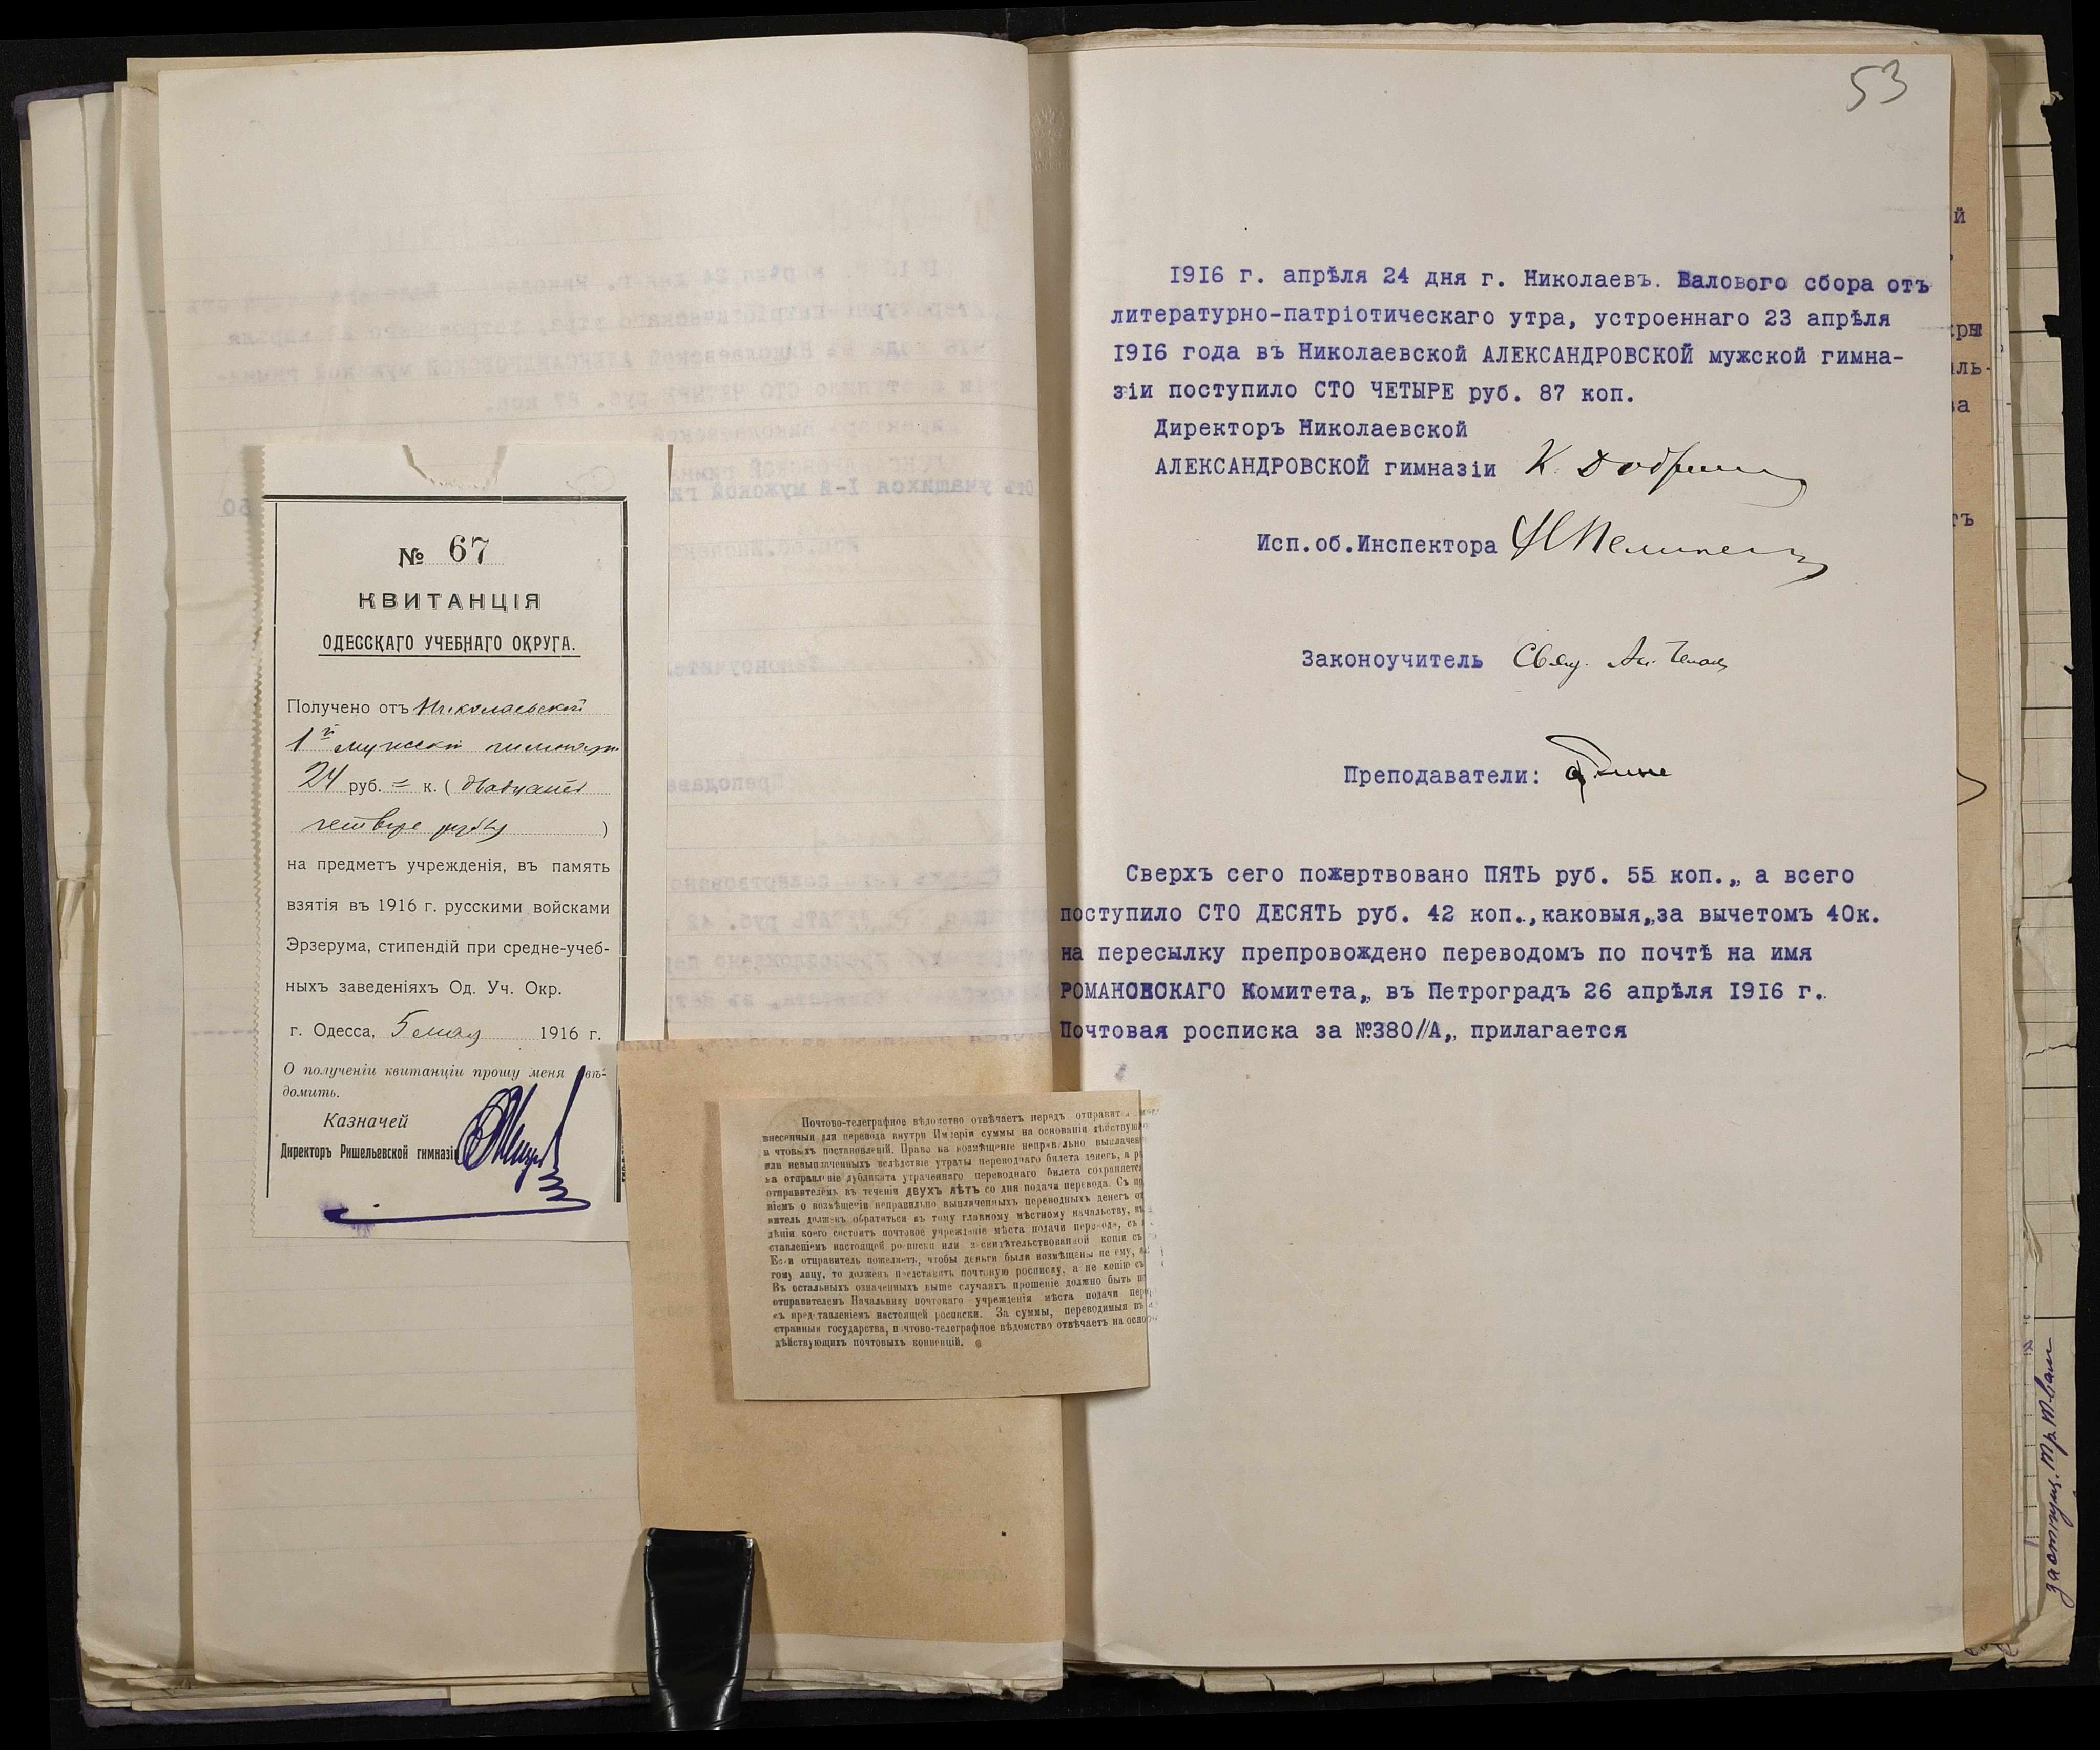 № 67
КВИТАНЦІЯ
ОДЕССКАГО УЧЕБНАГО ОКРУГА.
Получено отъ Николаевской
1й мужской гимназіи
24 руб. = к. (двадцать
четыре рубля)
на предметъ учрежденія, въ память
взятія въ 1916 г. русскими войсками
Эрзерума, стипендій при средне-учеб-
ныхъ заведеніяхъ Од. Уч. Окр.
г. Одесса, 5 мая 1916 г.
О полученіи квитанціи прошу меня увѣ-
домить.
Казначей
Директоръ Ришельевской гимназіи
Почтово-телеграфное вѣдомство отвѣчаетъ передъ
внесенныя для перевода внутри Имперіи суммы на основаніи
почтовыхъ постановленій. Право на возмѣщеніе неправильно
или невыплаченныхъ вслѣдствіе утраты переводнаго билета денегъ, а
на отправленіе дубликата утраченнаго переводнаго билета сохраняется
отправителемъ въ теченіи ДВУХЪ ЛѢТЪ со дня подачи перевода. Съ
о возмѣщеніи неправильно выплаченныхъ переводныхъ денегъ
долженъ обратиться къ тому главному мѣстному начальству,
коего состоитъ почтовое учрежденіе мѣста подачи перевода, съ
ставленіемъ настоящей росписки или засвидѣтельствованной копіи съ
Если отправитель пожелаетъ, чтобы деньги были возмѣщены не ему, а
тому лицу, то долженъ представить почтовую росписку, а не копію съ
Въ остальныхъ означенныхъ выше случаяхъ прошеніе должно быть
отправителемъ Начальнику почтоваго учрежденія мѣста подачи
съ представленіемъ настоящей росписки. За суммы, переводимыя въ
странныя государства, почтово-телеграфное вѣдомство отвѣчаетъ на
дѣйствующихъ почтовыхъ конвенцій.
53
1916 г. апрѣля 24 дня г. Николаевъ. Валового сбора отъ
литературно-патріотическаго утра, устроеннаго 23 апрѣля
1916 года въ Николаевской АЛЕКСАНДРОВСКОЙ мужской гимна-
зіи поступило СТО ЧЕТЫРЕ руб. 87 коп.
Директоръ Николаевской
АЛЕКСАНДРОВСКОЙ гимназіи К.
Исп.об.Инспектора
Законоучитель Свящ.
Преподаватели:
Сверхъ сего пожертвовано ПЯТЬ руб. 55 коп.,, а всего
поступило СТО ДЕСЯТЬ руб. 42 коп.,каковыя,,за вычетомъ 40к.
на пересылку препровождено переводомъ по почтѣ на имя
РОМАНОВСКАГО Комитета,, въ Петроградъ 26 апрѣля 1916 г.
Почтовая росписка за №380//А,, прилагается